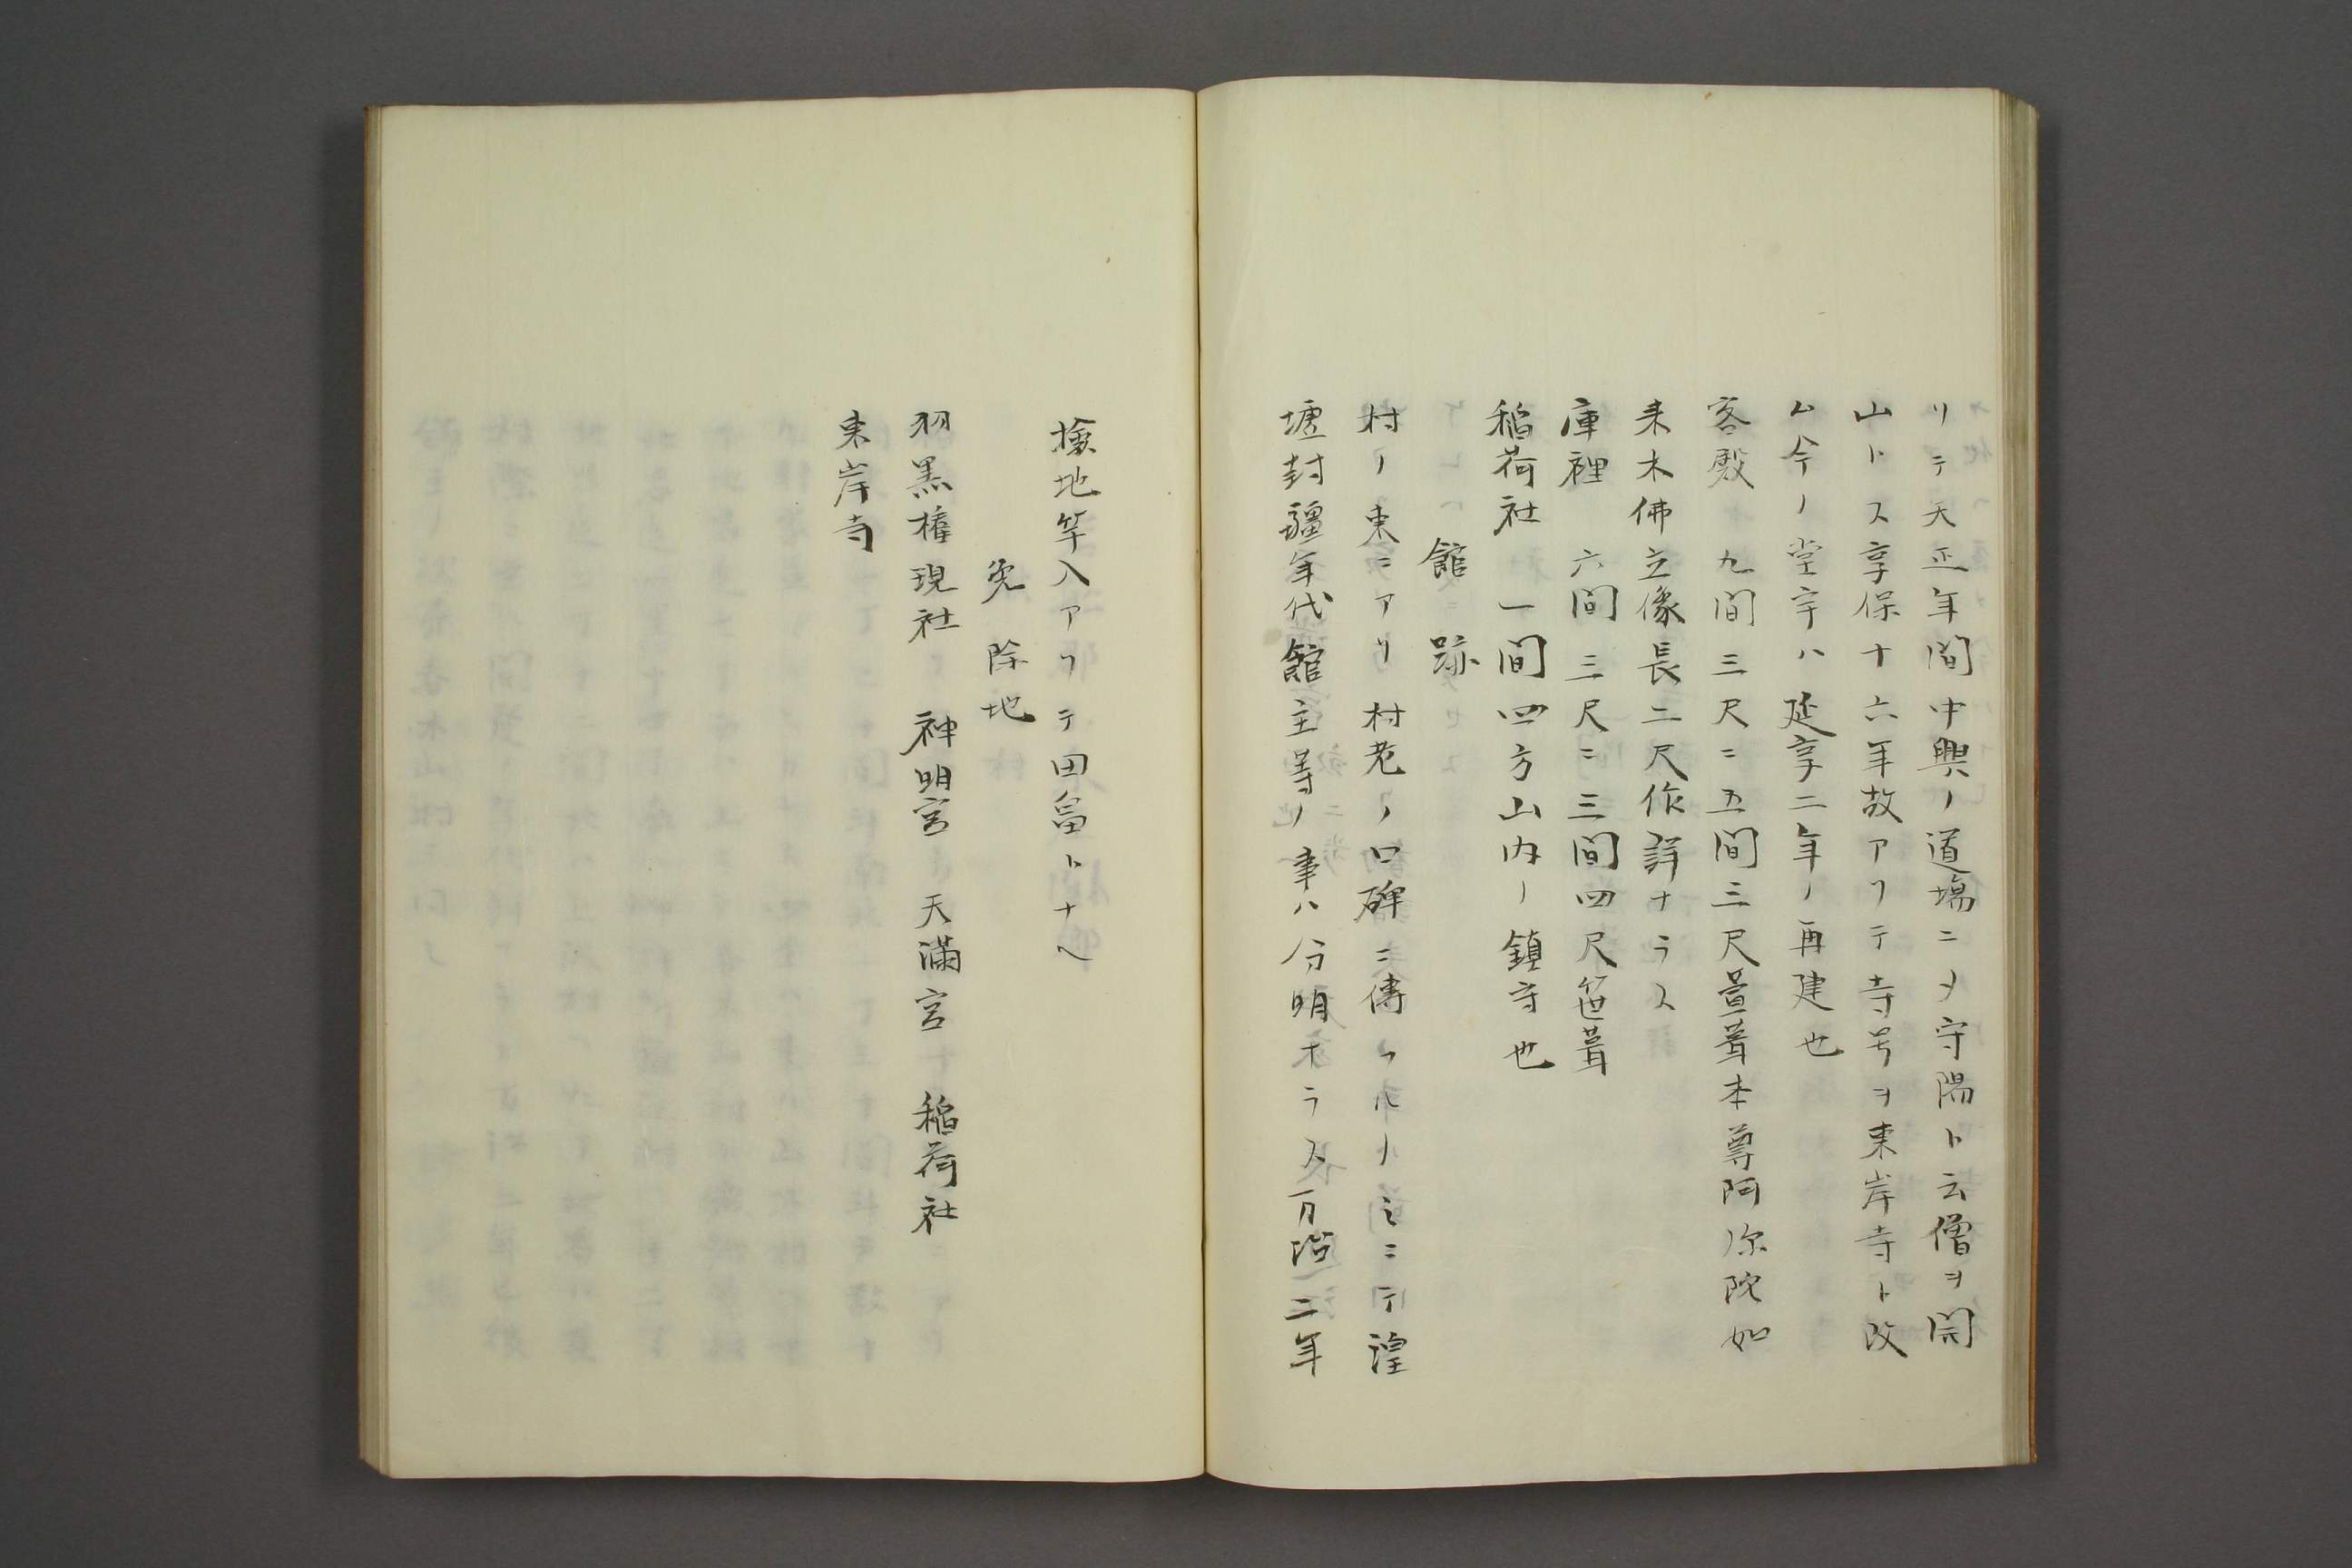 リテ天正年間中興ノ道塲ニメ守陽ト云僧ヲ開
山トス享保十六年故アツテ寺号ヲ東岸寺ト改
ム今ノ堂宇ハ延享二年ノ再建也
客殿 九間三尺ニ五間三尺萱葺本尊阿弥陀如
来木佛立像長二尺作詳ナラス
庫裡 六間三尺ニ三間四尺笹葺
稲荷社 一間四方山内ノ鎮守也
館跡
村ノ東ニアリ村老ノ口碑ニ傳フルノミニテ湟
壚封疆年代館主等ノ事ハ分明ナラス万治二年
撿地竿入アツテ田畠トナヘ
免除地
羽黒権現社 神明宮 天満宮 稲荷社
東岸寺